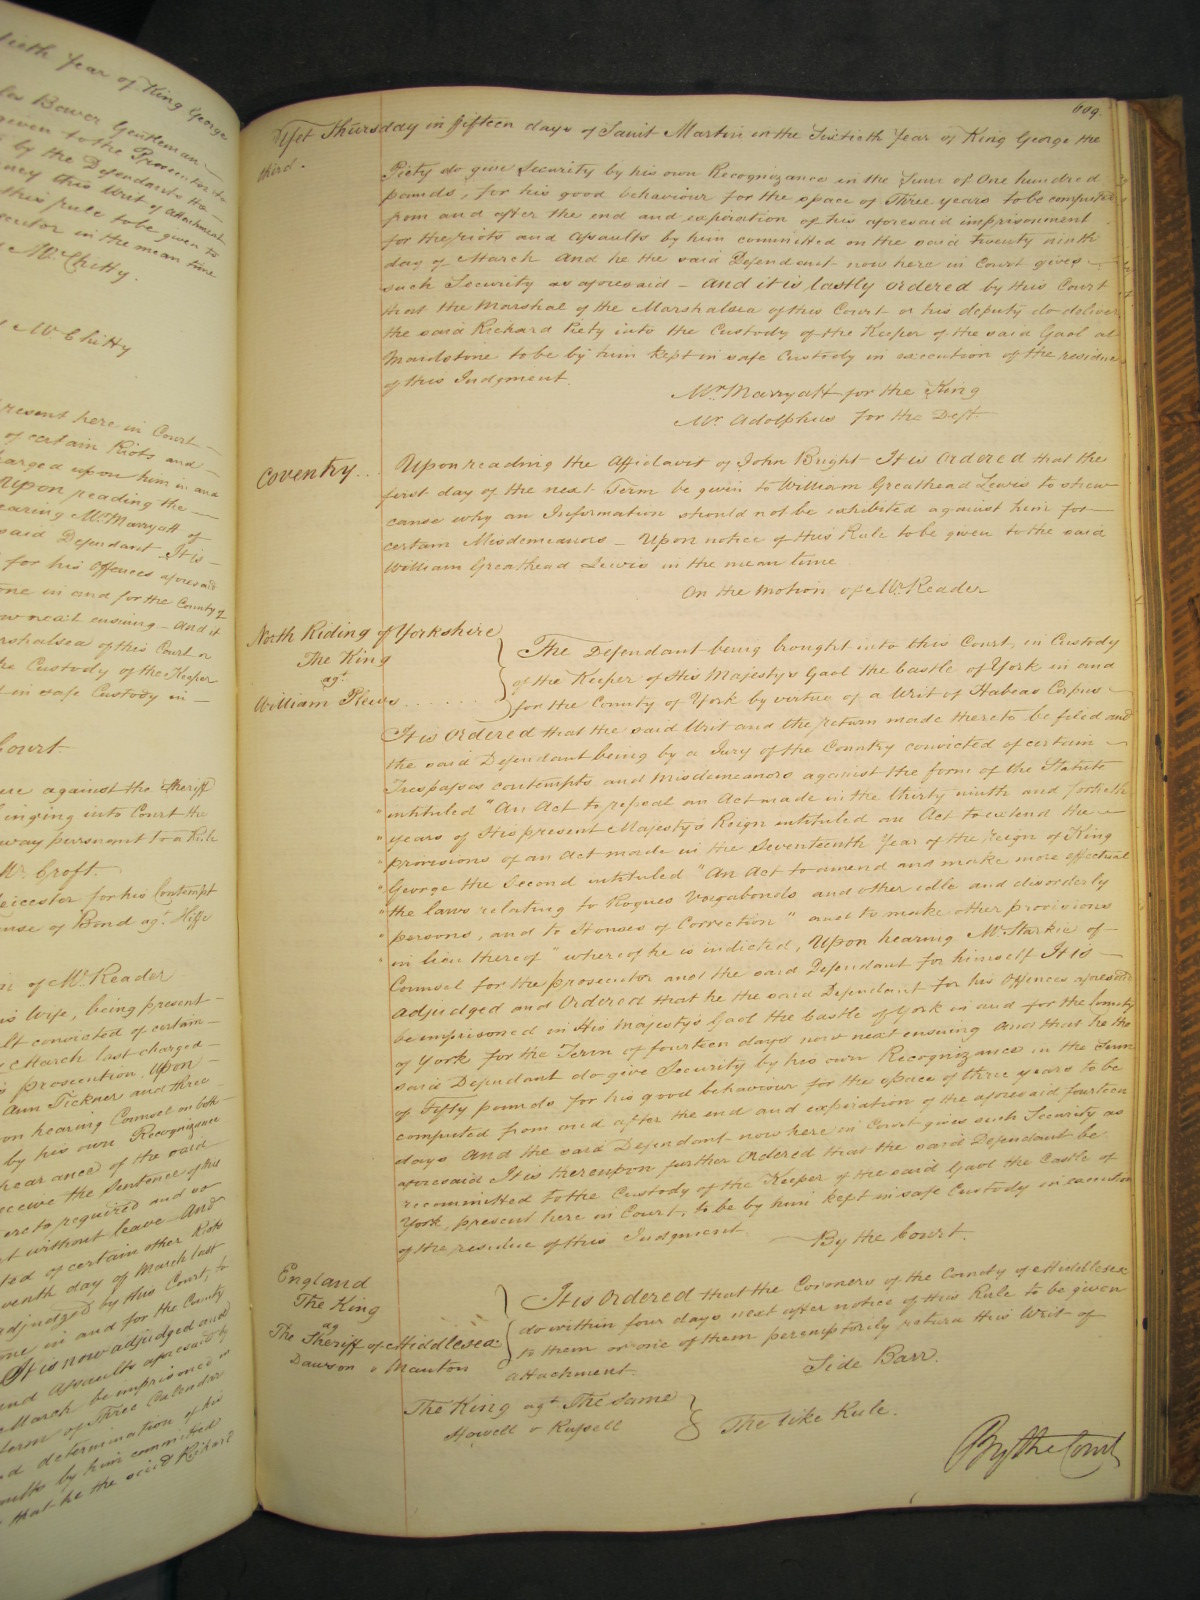 tieth Year of King George
les Bower Gentleman
given to the Prosecutor
by the Defendant
ney this Writ of Attachment
this rule to be given to
secutor in the mean time
Mr. Chitty.
Mr. Chitty
resent here in Court
of certain Riots and
harged upon him in and
Upon reading the
earing Mr. Marryatt of
said Defendant It is
for his Offences aforesaid
one in and for the County of
now next ensuing And it
rshalsea of this Court or
he Custody of the Keeper
in safe Custody in
Court
against the Sheriff
inging into Court the
way pursuant to a Rule
Mr. Croft.
Leicester for his Contempt
use of Bond agt. Hiffe
of Mr. Reader
is Wife, being present
lt convicted of certain
March last charged
s prosecution, Upon
Ann Tickner and three
on hearing Counsel on both
by his own Recognizance
hearance of the said
eceive the Sentence of this
ereto required and so
t without leave And
ted of certain other Riots
venth day of March last
adjudged by this Court, to
one in and for the County
It is now adjudged and
and Assaults aforesaid by
March be imprisoned in
term of Three Calendar
d determination of his
aults by him committed
that he the said Richard
609.
Yet Thursday in fifteen days of Saint Martin in the Sixtieth Year of King George the
third.
Piety do give Security by his own Recognizance in the Sum of One hundred
pounds, for his good behaviour for the space of Three years to be computed
from and after the end and expiration of his aforesaid imprisonment
for the riots and assaults by him committed on the said twenty ninth
day of March And he the said Defendant now here in Court gives
such Security as aforesaid – And it is lastly ordered by this Court
that the Marshal of the Marshalsea of this Court or his deputy do deliver
the said Richard Piety into the Custody of the Keeper of the said Gaol at
Maidstone to be by him kept in safe Custody in execution of the residue
of this Judgment.
Mr. Marryatt for the King
Mr. Adolphus for the Deft.
Coventry..
Upon reading the Affidavit of John Bright It is Ordered that the
first day of the next Term be given to William Greathead Lewis to shew
cause why an Information should not be exhibited against him for
certain Misdemeanors – Upon notice of this Rule to be given to the said
William Greathead Lewis in the mean time
On the Motion of Mr. Reader
North Riding of Yorkshire
The King
agt.
William Plews......
The Defendant being brought into this Court, in Custody
of the Keeper of His Majesty's Gaol the Castle of York in and
for the County of York by virtue of a Writ of Habeas Corpus
It is Ordered that the said Writ and the return made thereto be filed and
the said Defendant being by a Jury of the Country convicted of certain
Trespasses contempts and misdemeanors against the form of the Statute
"intituled "An Act to repeal an Act made in the thirty ninth and fortieth
"years of His present Majesty's Reign intituled an Act to extend the
"provisions of an Act made in the Seventeenth Year of the reign of King
"George the Second intituled "An Act to amend and make more effectual
"the laws relating to Rogues Vagabonds and other idle and disorderly
"persons, and to Houses of Correction" and to make other provisions
"in lieu thereof" whereof he is indicted, Upon hearing Mr. Starkie of
Counsel for the prosecutor and the said Defendant for himself It is
Adjudged and Ordered that he the said Defendant for his Offences aforesaid
be imprisoned in His Majesty's Gaol the Castle of York in and for the County
of York for the Term of fourteen days now next ensuing And that he the
said Defendant do give Security by his own Recognizance in the Sum
of Fifty pounds for his good behaviour for the space of three years to be
computed from and after the end and expiration of the aforesaid fourteen
days And the said Defendant now here in Court gives such Security as
aforesaid It is thereupon further Ordered that the said Defendant be
recommitted to the Custody of the Keeper of the said Gaol the Castle of
York, present here in Court, to be by him kept in safe Custody in execution
of the residue of this Judgment
By the Court.
England
The King
ag
The Sheriff of Middlesex
Dawson v Manton
It is Ordered that the Coroners of the County of Middlesex
do within four days next after notice of this Rule to be given
to them or one of them peremptorily return this Writ of
attachment.
Side Barr.
The King agt. The Same
Howell v Russell
The like Rule.
By the Court